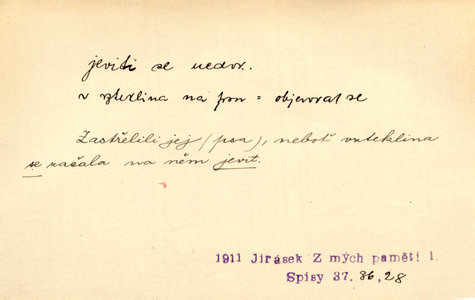 jeviti se nedok.
vzteklina na psu = objevovat se
Zastřelili jej (psa), neboť vzteklina
se začala na něm jevit.
1911 Jirásek Z mých pamětí 1.
Spisy 37. 36, 28